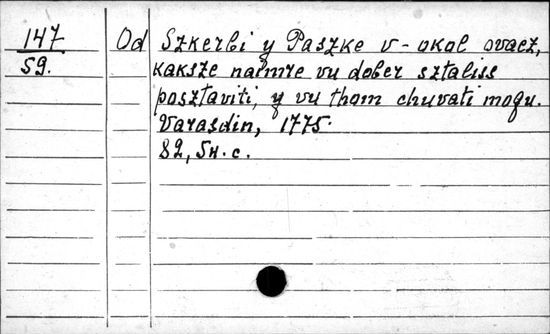 147
59.
Od Szkerbi y Paszke v-okol ovacz,
kaksze naimre vu dober sztaliss
posztaviti, y vu thom chuvati mogu.
Varasdin, 1775.
82, 5H. c.